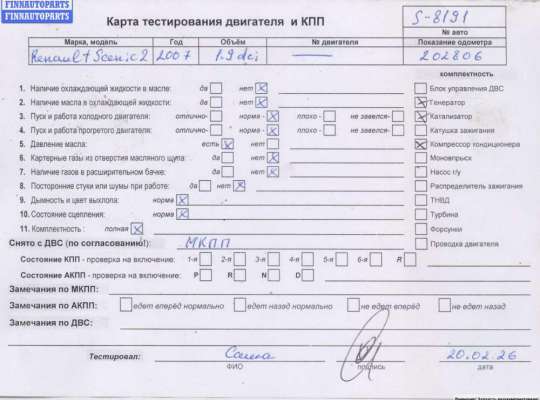 FINNAUTOPARTS
FINNAUTOPARTS
Карта тестирования двигателя и КПП
S-8191
№ авто
Марка, модель Год Объём № двигателя Показание одометра
Renault Scenic 2 2007 1.9 dci — 202806
комплектность
1. Наличие охлаждающей жидкости в масле: да нет X Блок управления ДВС
2. Наличие масла в охлаждающей жидкости: да нет X X Генератор
3. Пуск и работа холодного двигателя: отлично- норма - X плохо - не завелся- X Катализатор
4. Пуск и работа прогретого двигателя: отлично- норма - X плохо - не завелся- Катушка зажигания
5. Давление масла: есть X нет X Компрессор кондиционера
6. Картерные газы из отверстия масляного щупа: да нет X Моновпрыск
7. Наличие газов в расширительном бачке: да нет X Насос г/у
8. Посторонние стуки или шумы при работе: да нет X Распределитель зажигания
9. Дымность и цвет выхлопа: норма X ТНВД
10. Состояние сцепления: норма X Турбина
11. Комплектность : полная X Форсунки
Снято с ДВС (по согласованию!): МКПП Проводка двигателя
Состояние КПП - проверка на включение: 1-я 2-я 3-я 4-я 5-я 6-я R
Состояние АКПП - проверка на включение: P R N D
Замечания по МКПП:
Замечания по АКПП: едет вперёд нормально едет назад нормально не едет вперёд не едет назад
Замечания по ДВС:
Тестировал: 20.02.26
ФИО подпись дата